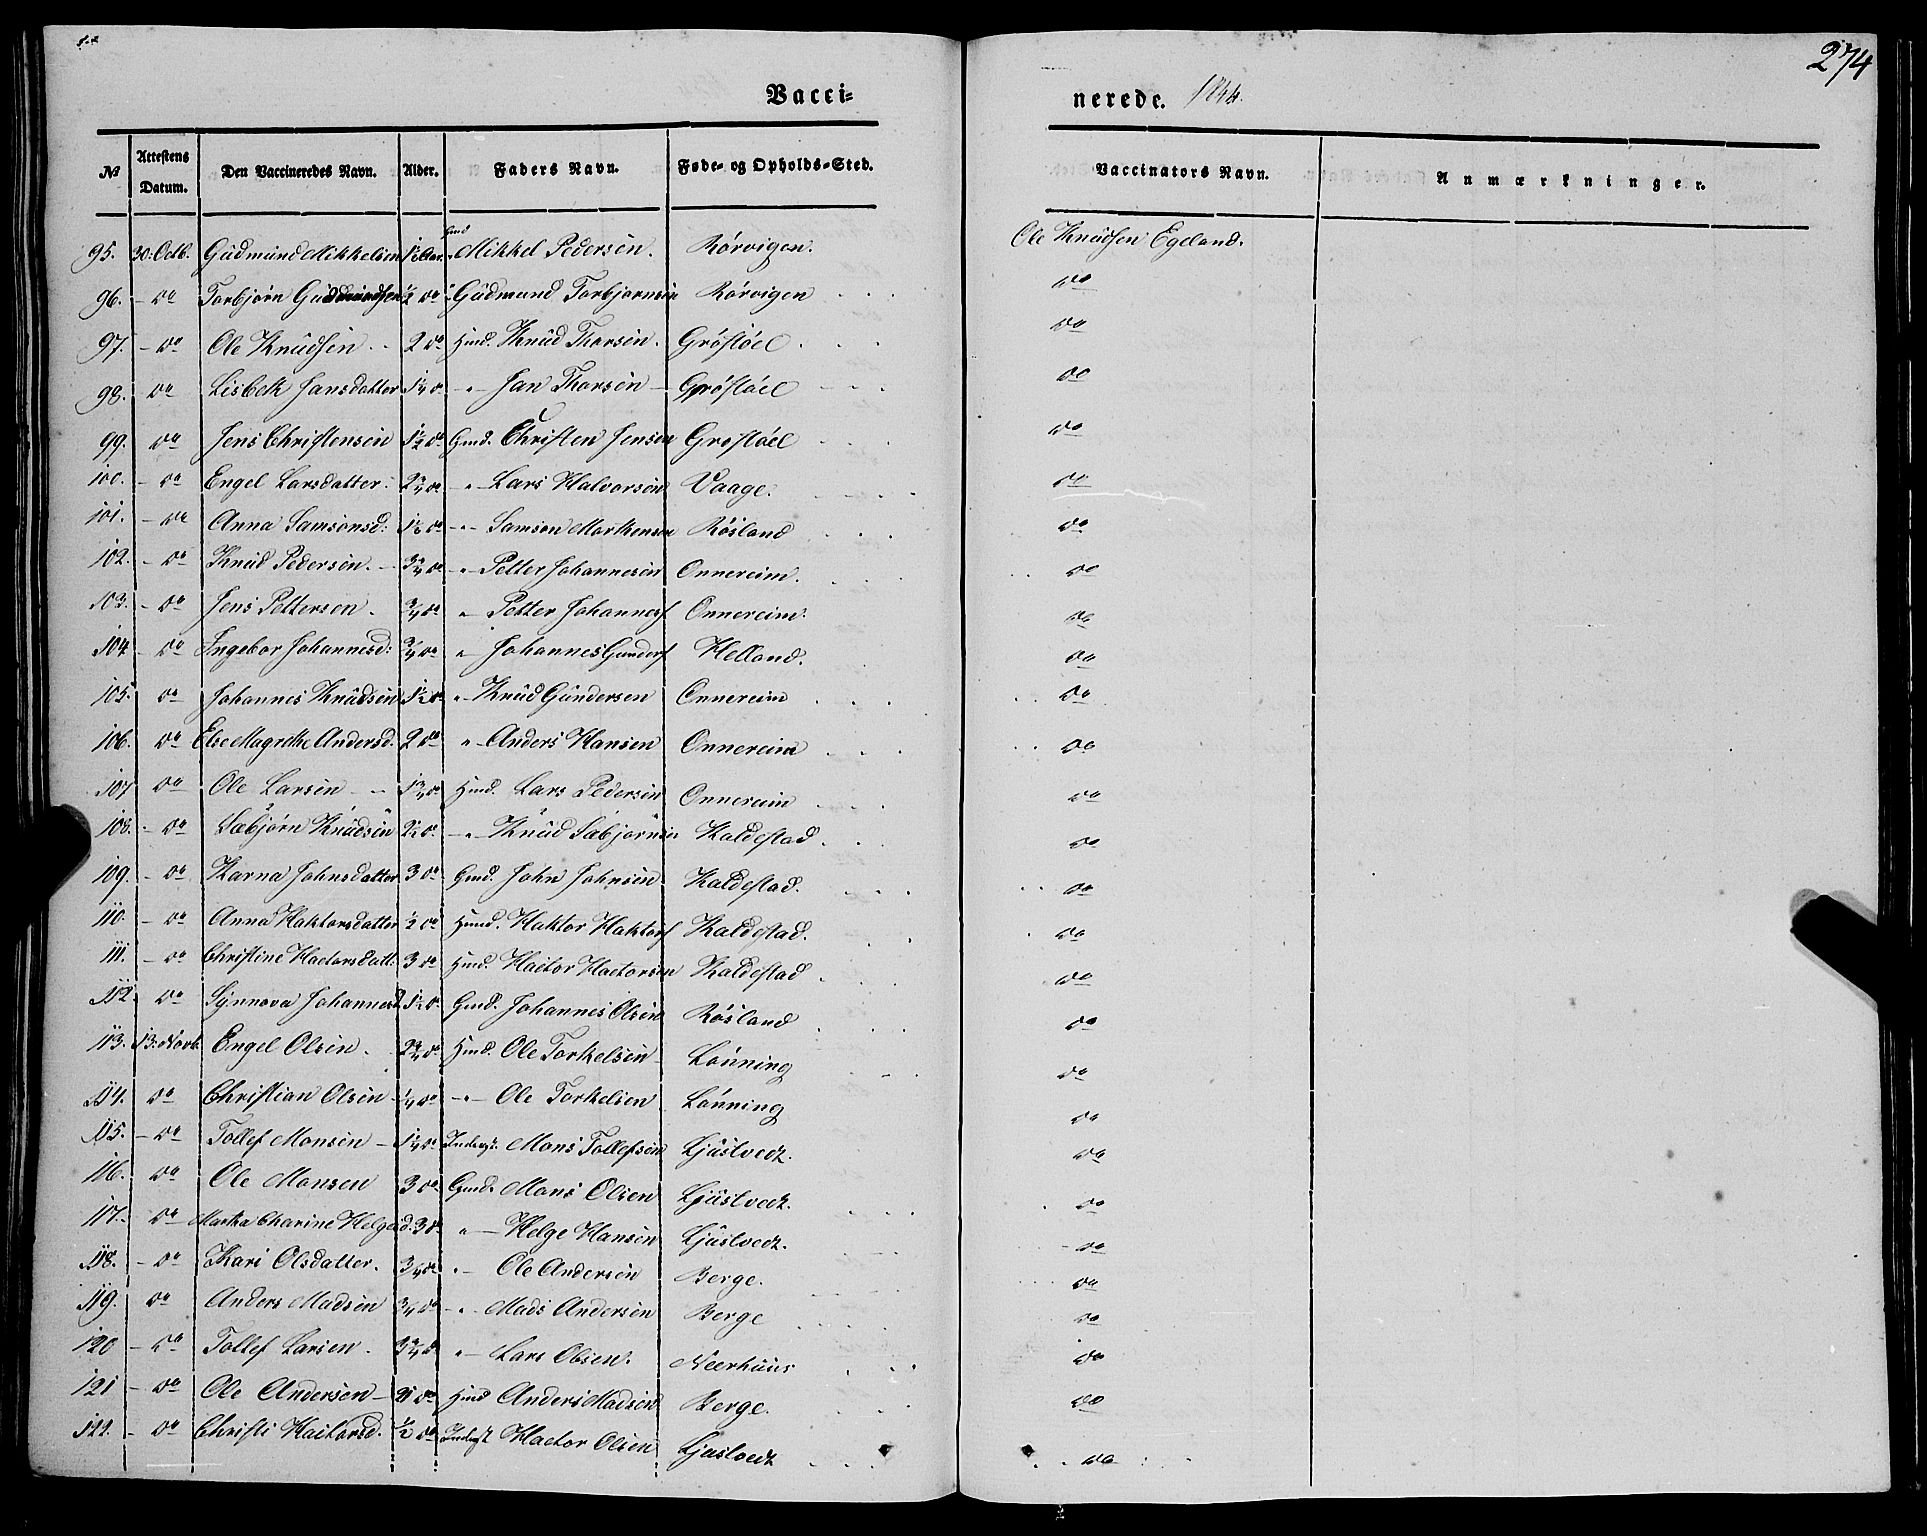 274
Vacci= nerede. 1844.
No Attestens Datum. Den Vaccineredes Navn. Alder. Faders Navn. Føde- og Opholds-Sted. Vaccinators Navn. Anmærkninger.
95. 30. Octb. Gudmund Mikkelsen Mikkel Pedersen. Rørvigen. Ole Knudsen Egeland.
96. - do Torbjørn Gudmundsen 1/2 do Gudmund Torbjørnsen Rørvigen do
97. - do Ole Knudsen - 2 do Huusd. Knud Thorsen. Gröstöel do
98. do Lisbeth Jansdatter 1 1/4 do - " - Jan Thorsen Gröstöel do
99. do Jens Christensen 1 1/2 do Gmd. Christen Jensen Gröstöel do
100. - do Engel Larsdatter 2 3/4 do - " - Lars Halvorsen Vaage. do
101. - do Anna Samsonsd: do - " - Samson Morthensen Røsland do
102. - do Knud Pedersen. - 3 3/4 do - " - Petter Johannesen Onnereim. do
103. - do Jens Pettersen. 3/4 do " - Petter Johannesf Onnereim. do
104 - do Ingebor Johannesd: 3/4 do " Johannes Gunderf Helland. do
105. do Johannes Knudsen 1 1/2 do " - Knud Gundersen Onnereim do
106. do Else Magrethe Andersd. 2 do " - Anders Hansen Onnereim do
107 do Ole Larsen - - 1 3/4 do Hmd. Lars Pedersen Onnereim do
108. - do Sæbjørn Knudsen do - " - Knud Sæbjørnsen Kaldestad. do
109. - do Karna Johnsdatter 3 do Gmd. John Johnsen Kaldestad. do
110. - do Anna Haktorsdatter 1/2 do Huusd. Haktor Haktorf Kaldestad. do
111. - do Christine Hactorsdatt: 3 do Hmd. Hactor Hactorsen Kaldestad do
112 - do Synnova Johannesd 1 1/2 do Gmd. Johannes Olsen Røsland do
113. 13. Novb. Engel Olsen. 2 3/4 do Hmd. Ole Torkelsen Lönning do
114. do Christian Olsen 1/4 do - " - Ole Torkelsen Lönning do
115. - do Tollef Monsen - 1 1/4 do Inderst. Mons Tollefsen Ljustvedt. do
116. - do Ole Monsen 3 do Gmd. Mons Olsen Ljustvedt. do
117. - do Martha Charine Helgesd. 3 do " - Helge Hansen Ljustvedt. do
118. - do Kari Olsdatter. do " - Ole Andersen Berge. do
119. do Anders Madsen 3/4 do - " - Mads Andersen Berge do
120 - do Tollef Larsen. 3 3/4 do " - Lars Olsen. Neerhuus do
121 - do Ole Andersen do Hmd Anders Madsen Berge. do
122. - do Christi Hactorsd. 1/2 do Inderst Hactor Olsen Ljustvedt do